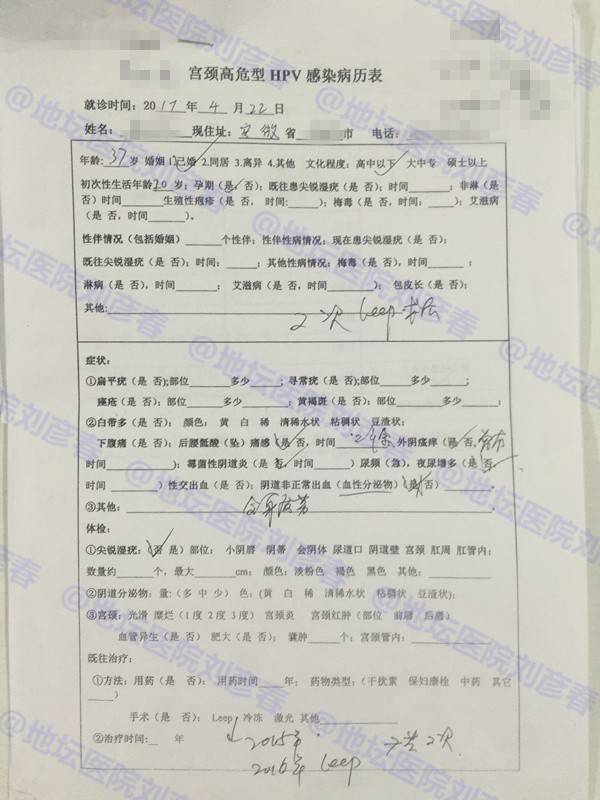 宫颈高危型 HPV 感染病历表
就诊时间：2017 年 4 月 22 日
姓名： 现住址：安徽 省 市 电话：
年龄：37 岁 婚姻 1.已婚 2.同居 3.离异 4.其他 文化程度：高中以下 大中专 硕士以上
初次性生活年龄20 岁；孕期（是 否）；既往患尖锐湿疣（是 否）；时间______；非淋（是
否）时间______生殖性疱疹（是 否， 时间：____）；梅毒（是 否，时间：____）；艾滋病
（是 否，时间______）。
性伴情况（包括婚姻）______个性伴；性伴性病情况：现在患尖锐湿疣（是 否）；
既往尖锐湿疣（是 否）；时间：____；其他性病情况：梅毒（是 否），时间______；
淋病（是 否），时间______； 艾滋病（是 否，时间______）； 包皮长（是 否）；
其他：2次 Leep
症状：
①扁平疣（是 否）；部位______多少____；寻常疣（是 否）；部位______多少______；
痤疮（是 否）：部位______多少______； 黄褐斑（是 否）：部位______多少______；
②白带多（是 否） 颜色： 黄 白 稀 清稀水状 粘稠状 豆渣状；
下腹痛（是 否）；后腰骶酸（坠）痛感（是 否，时间 外阴瘙痒（是 否，
时间______）；霉菌性阴道炎（是 否，时间______）尿频（急），夜尿增多（是 否，
时间 ______）性交出血（是 否）；阴道非正常出血（血性分泌物）（是 否）______。
③其他：
体检：
①尖锐湿疣：（否 是）部位： 小阴唇 阴蒂 会阴体 尿道口 阴道壁 宫颈 肛周 肛管内；
数量约______个，最大______cm； 颜色：淡粉色 褐色 黑色 其他：______
②阴道分泌物：量：（多 中 少） 色：（黄 白 稀 清稀水状 粘稠状 豆渣状）；
③宫颈：光滑 糜烂（1度 2度 3度） 宫颈炎 宫颈红肿（部位 前唇 后唇）
血管异生（是 否） 肥大（是 否）； 囊肿______个；宫颈管内：______
既往治疗：
①方法：用药（是 否）； 用药时间____年； 药物类型：（干扰素 保妇康栓 中药 其它
____）
手术（是 否）： Leep 冷冻 激光 其他______
②治疗时间：__ 年 2015年 共2次
2016年 Leep
@地坛医院刘彦春